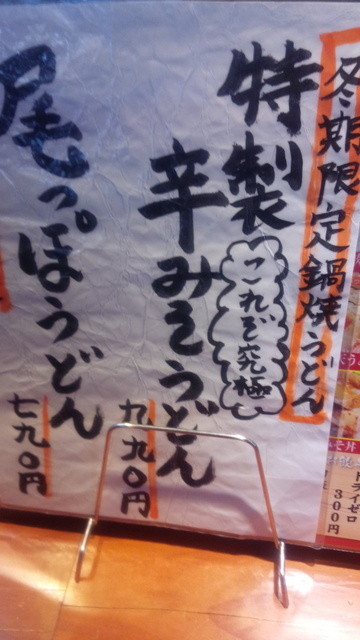 冬期限定鍋焼うどん
特製
これぞ究極
辛みそうどん
九九〇円
尾っぽうどん
七九〇円
ドライゼロ
300円